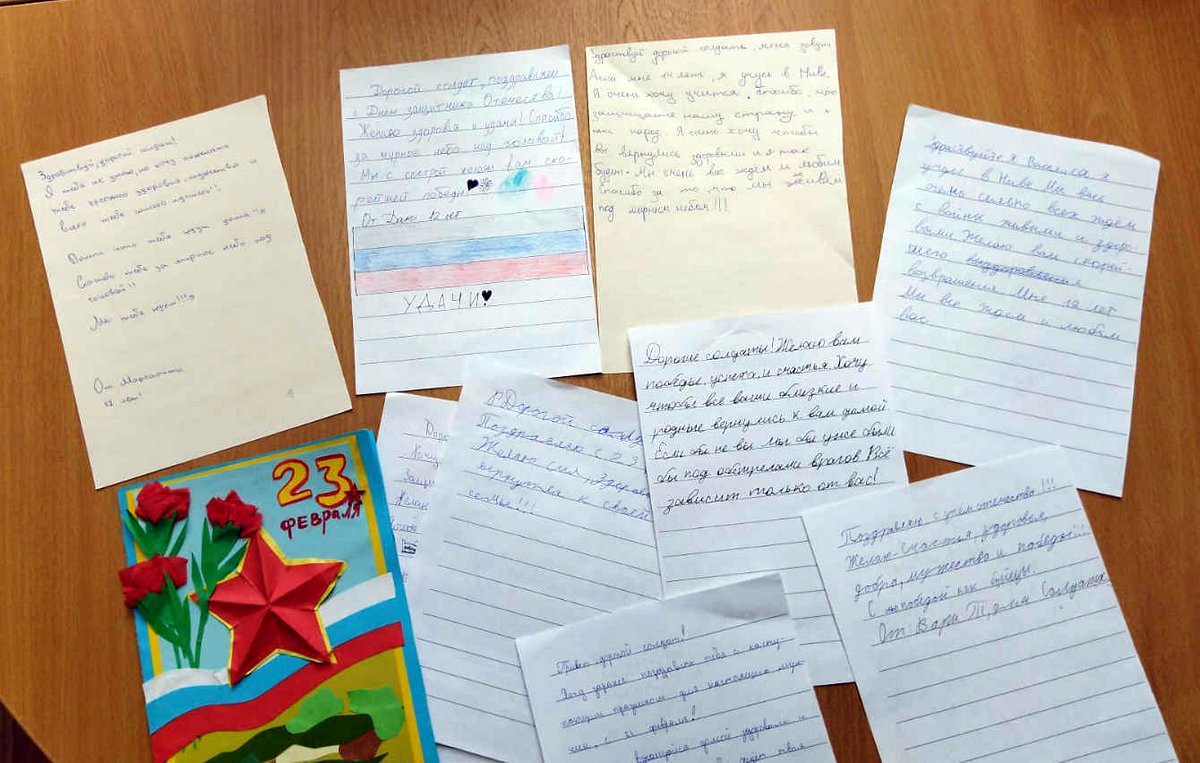 Здравствуй, дорогой солдат!
Я тебя не знаю, но хочу пожелать
тебе крепкого здоровья, мужества и
всего тебе самого лучшего!
Помни что тебя ждут дома!!!
Спасибо тебе за мирное небо над
головой!!
Мы тебя ждём!!!
От Маргариты
12 лет!
Дорогой солдат, поздравляем
с Днём защитника Отечества!
Желаю здоровья и удачи! Спасибо
за мирное небо над головой!
Мы с сестрой желаем вам ско-
рейшей победы!
От Даны 12 лет
УДАЧИ!
Здраствуй дорогой солдать, меня зовут
мне лет, я учусь в
Я очень хочу учится. Спасибо, что
защищаете нашу страну и
наш народ. Я очень хочу чтобы
Вы вернулись здоровыми и я так
будет. Мы очень вас ждём и любим
Спасибо за то, что мы живём
под мирным небом!!!
Здравствуйте я Василиса я
учусь в Мы вас
очень сильно всех ждём
с войны живыми и здор-
выми Желаю вам скорей-
шего
возвращения Мне 12 лет
Мы все ждём и любим
вас
Дорогие солдаты! Желаю вам
победы, успеха, и счастья. Хочу
чтобы все ваши близкие и
родные вернулись к вам домой.
Если бы не вы мы бы уже были
бы под обстрелами врагов. Всё
зависит только от вас!
Дорогой
Поздравляю с 23
Желаю сил, здоровья
вернутся к своей
семье!!!
Поздравляю с днём отечества!!!
Желаю счастья, здоровья,
добра, мужество и победы!!!
С победой как бойцы.
От Вари Т, для Солдата
Привет, дорогой солдат!
Хочу заранее поздравить тебя с насту-
пающим праздником для настоящих муж-
чин, с 23 февраля!
домой здоровым и
твоя
23
ФЕВРАЛЯ